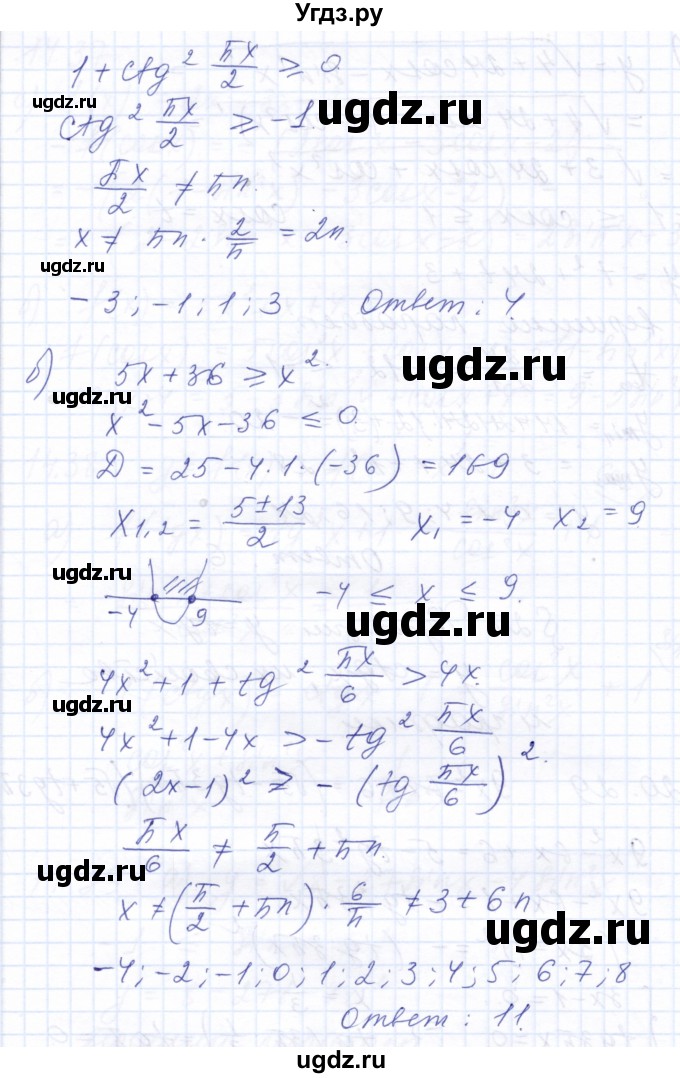 Угдз.ру
1 + ctg² πx/2 ≥ 0.
ugdz.ru
ugdz.ru
ctg² πx/2 ≥ -1.
πx/2 ≠ πn.
x ≠ πn · 2/π = 2n.
ugdz.ru
-3; -1; 1; 3 Ответ: 4.
б) 5x + 36 ≥ x².
ugdz.ru
ugdz.ru
x² - 5x - 36 ≤ 0.
D = 25 - 4·1·(-36) = 169
x1,2 = (5 ± 13)/2 x1 = -4 x2 = 9
ugdz.ru
-4 9 -4 ≤ x ≤ 9.
ugdz.ru
4x² + 1 + tg² πx/6 > 4x.
ugdz.ru
4x² + 1 - 4x > -tg² πx/6
(2x - 1)² > -(tg πx/6)².
ugdz.ru
πx/6 ≠ π/2 + πn.
ugdz.ru
x ≠ (π/2 + πn) · 6/π ≠ 3 + 6n
ugdz.ru
-4; -2; -1; 0; 1; 2; 3; 4; 5; 6; 7; 8
ugdz.ru
Ответ: 11.
ugdz.ru